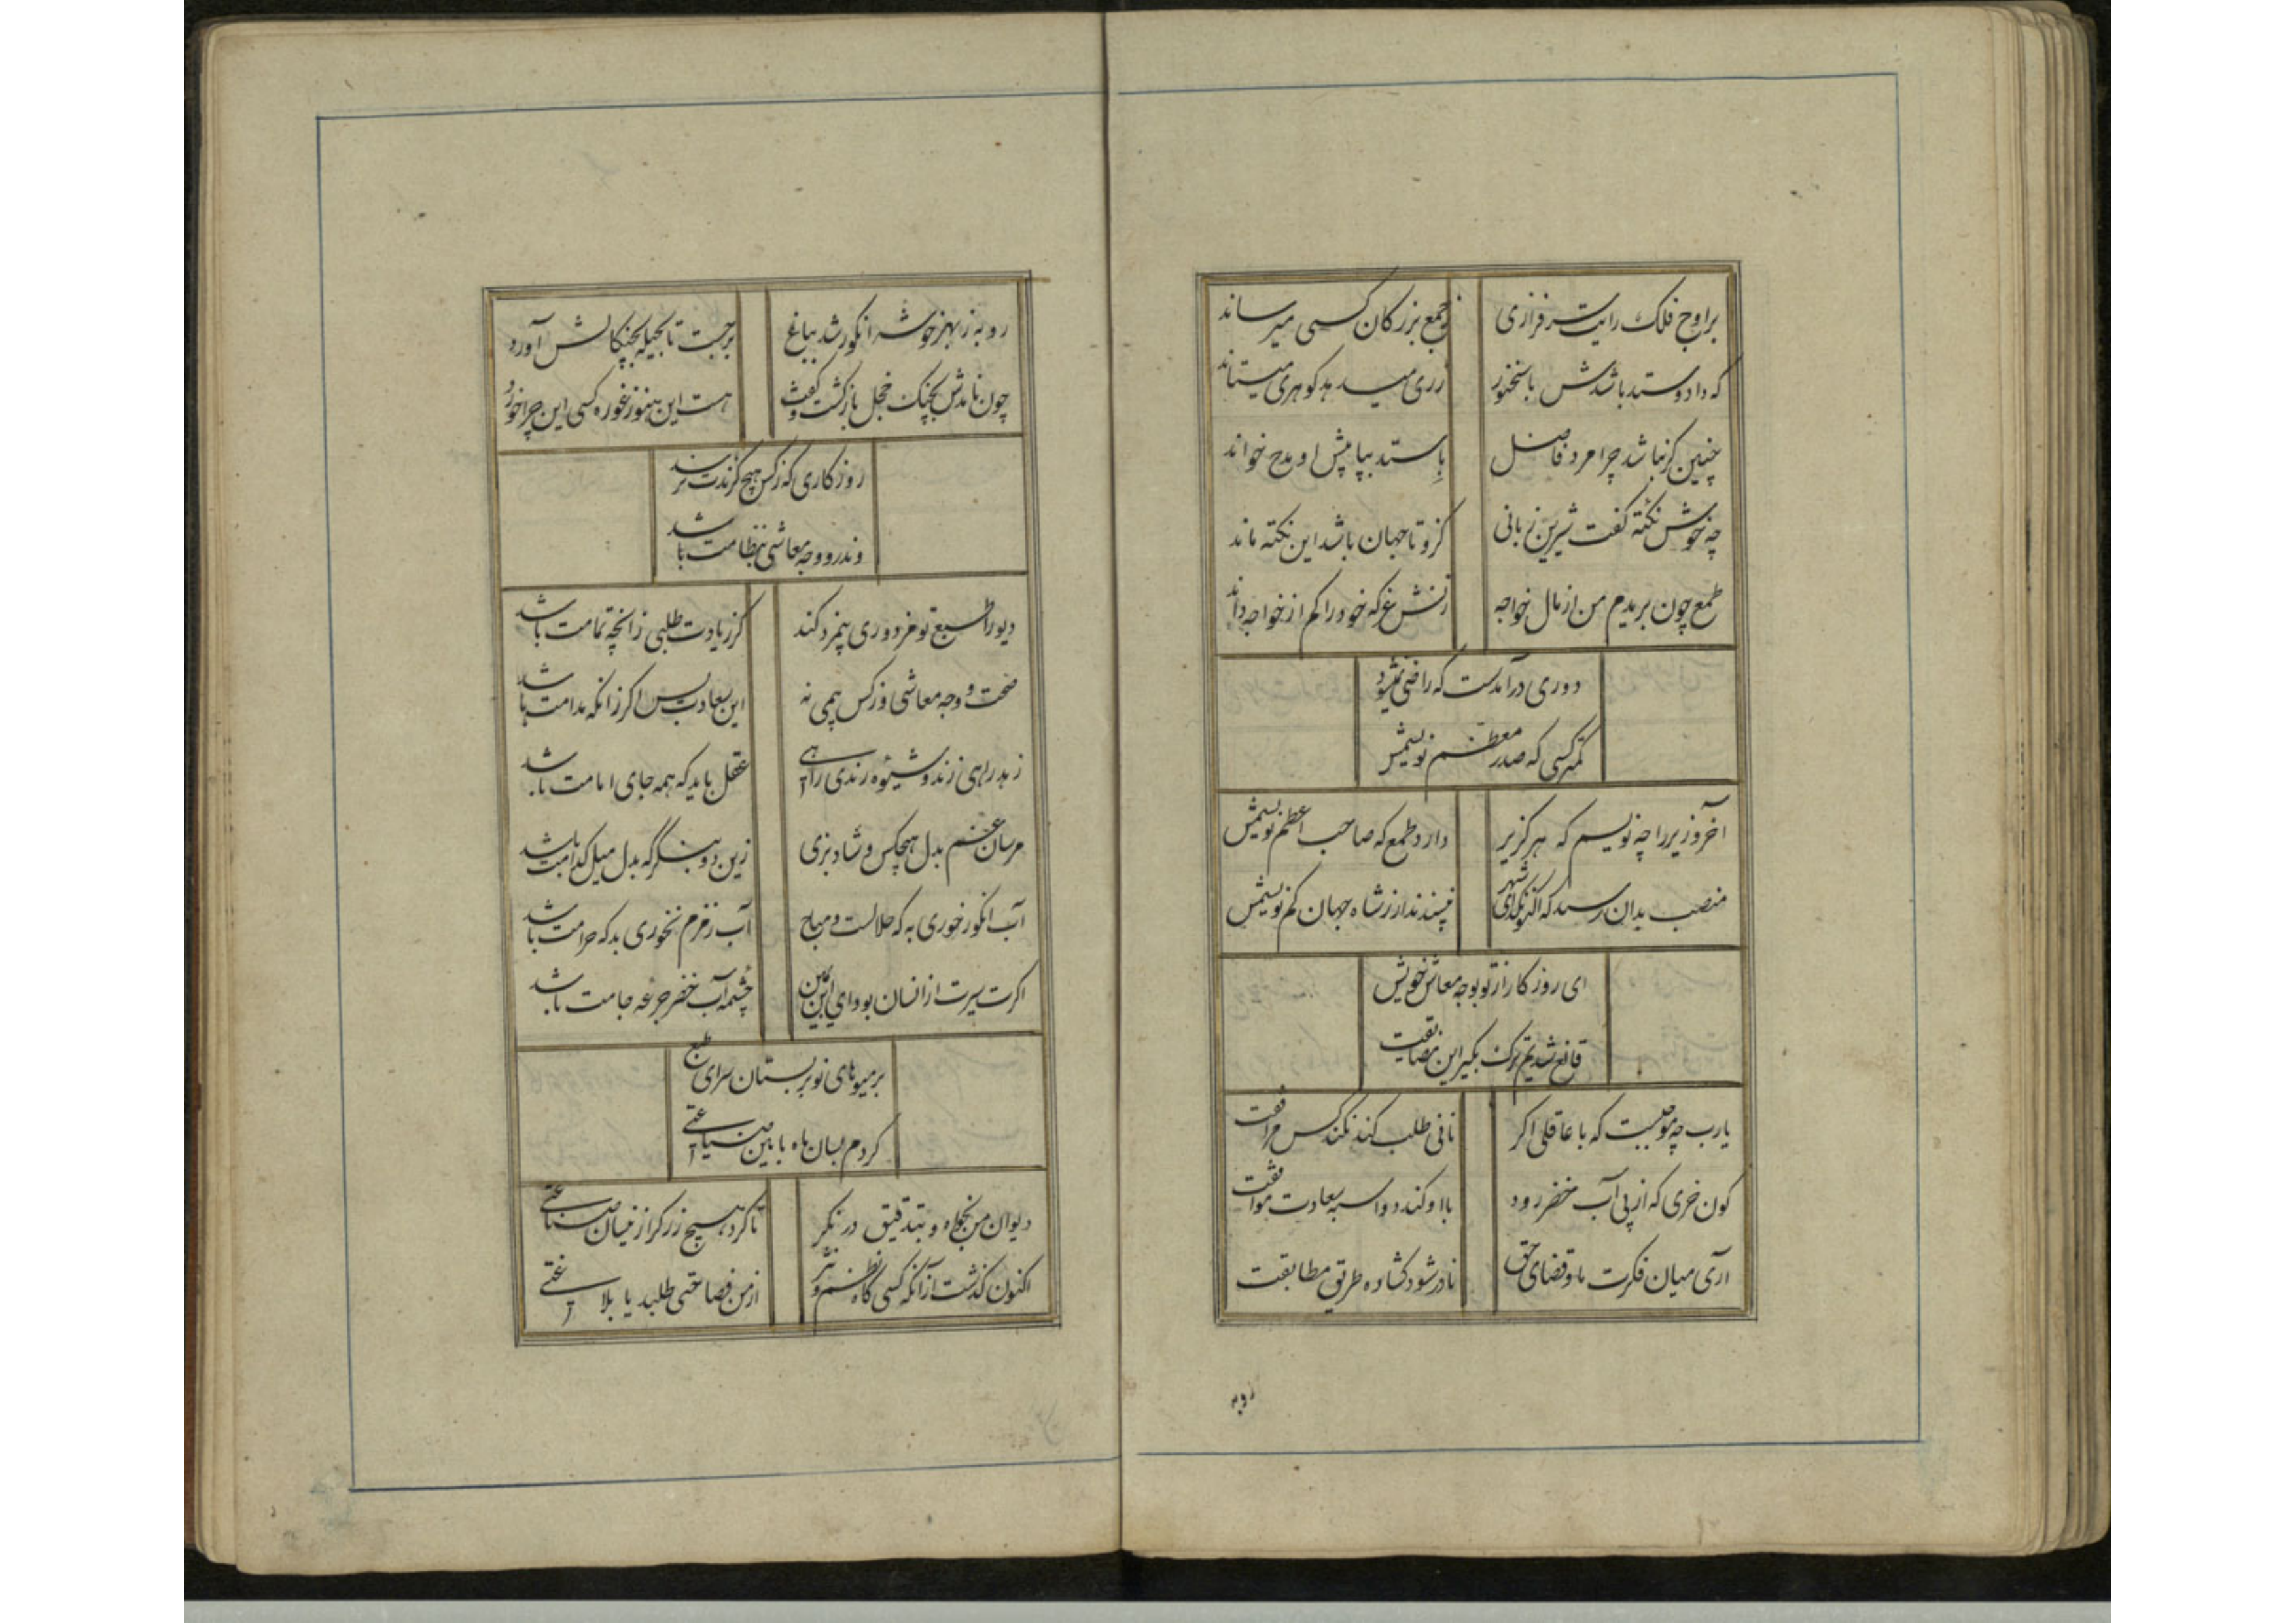 بر اوج فلک رایت سرفرازی ز جمع بزرگان کسی میرساند
که داد و ستد باشدش با سخنور زری میدهد گوهری میستاند
چنین گر نباشد چرا مرد فاضل باستد بپا پیش او مدح خواند
چه خوش نکته گفت شیرین زبانی کزو تا جهان باشد این نکته ماند
طمع چون بریدم من از مال خواجه زنش غر که خود را کم از خواجه داند
دوری در آمدست که راضی نمیشود
کمتر کسی که صدر معظم نویسمش
آخر وزیر را چه نویسم که هر گزیر دارد طمع که صاحب اعظم نویسمش
منصب بدان رسید که اکنون گدای شهر نپسندد ار ز شاه جهان کم نویسمش
ای روزگار از تو بوجه معاش خویش
قانع شدیم ترک بگیر این مضایقت
یارب چه موجبست که با عاقلی اگر نانی طلب کند نکند کس مرافقت
کون خری که از پی آب خضر رود با او کند دو اسبه سعادت موافقت
آری میان فکرت ما و قضای حق نادر شود گشاده طریق مطابقت
روبه
روبه ز بهر خوشه انگور شد بباغ برجست تا بحیله بچنگالش آورد
چون نامدش بچنگ خجل بازگشت و گفت هست این هنوز غوره کسی این چرا خورد
روزگاری که ز کس هیچ گزندت نرسد
وندرو وجه معاشی بنظامت باشد
دیو را طبع تو مزدوری بیمزد کند گر زیادت طلبی زانچه تمامت باشد
صحت و وجه معاشی و ز کس بیمی نه این سعادت بس اگر زانکه مدامت باشد
زهد راهی زند و شیوه رندی راهی عقل باید که همه جای امامت باشد
مرسان غم بدل هیچکس و شاد بزی زین دو بنگر که بدل میل کدامت باشد
آب انگور خوری به که حلالست و مباح آب زمزم نخوری بد که حرامت باشد
اگرت سیرت از انسان بود ای ابن یمین چشمه آب خضر جرعه جامت باشد
بر میوهای نوبر بستان سرای طبع
کردم بسان ماه باین صیاغتی
دیوان من بخواه و بتدقیق در نگر تا کرد هیچ زرگر ازینسان صناعتی
اکنون گذشت از آنکه کسی گاه نظم و نثر از من فصاحتی طلبد یا بلاغتی